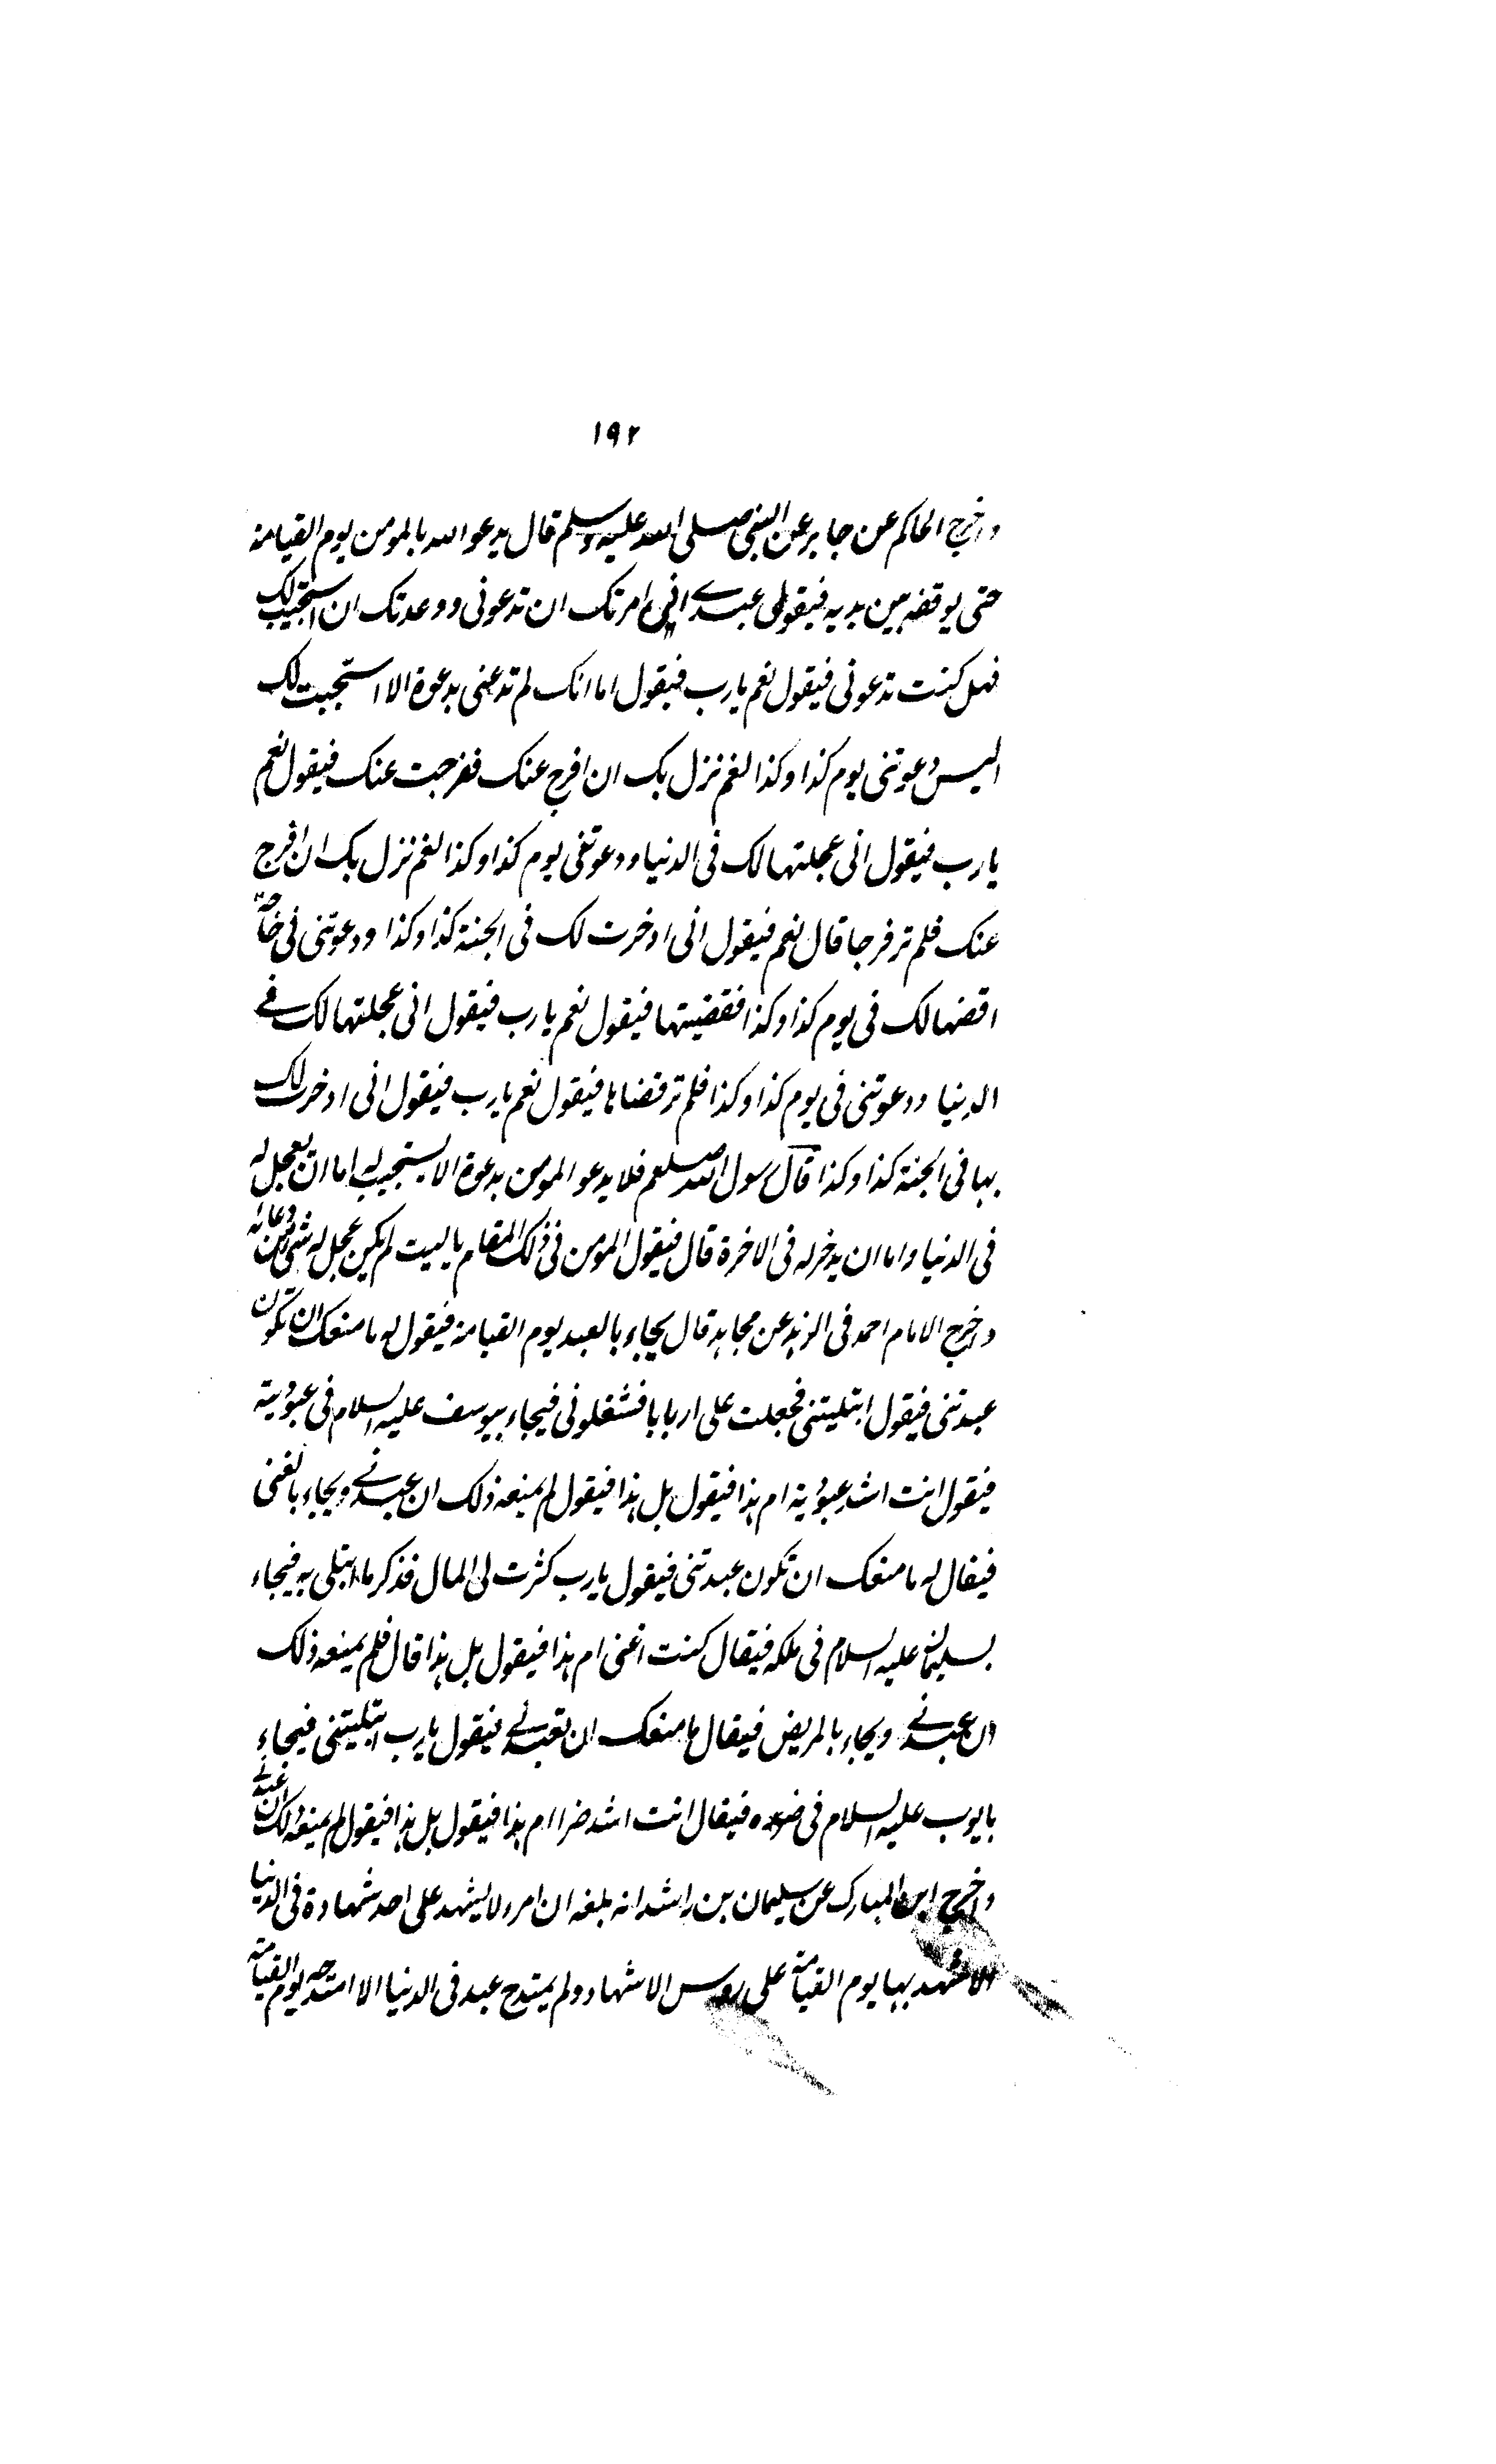 ١٩٢
واخرج الحاكم عن جابر عن النبي صلى الله عليه وسلم قال يدعو الله بالمومن يوم القيامة
حتى يوقفه بين يديه فيقول عبدي اني امرتك ان تدعوني ووعدتك ان استجيب لك
فهل كنت تدعوني فيقول نعم يارب فيقول اما انك لم تدعني بدعوة الا استجبت لك
اليس دعوتني يوم كذا وكذا لغم نزل بك ان افرج عنك ففرجت عنك فيقول نعم
يارب فيقول اني عجلتها لك في الدنيا ودعوتني يوم كذا وكذا لغم نزل بك ان افرج
عنك فلم تر فرجا قال نعم فيقول اني ادخرت لك في الجنة كذا وكذا ودعوتني في حاجة
اقضها لك في يوم كذا وكذا فقضيتها فيقول نعم يارب فيقول اني عجلتها لك في
الدنيا ودعوتني في يوم كذا وكذا فلم تر قضاها فيقول نعم يارب فيقول اني ادخرت لك
بها في الجنة كذا وكذا قال رسول الله صلعم فلا يدعو المومن بدعوة الا يستجيب له اما ان يعجل له
في الدنيا واما ان يدخر له في الاخرة قال فيقول المومن في ذلك المقام ياليت لم يكن عجل له شئ من دعائه
واخرج الامام احمد في الزهد عن مجاهد قال يجاء بالعبد يوم القيامة فيقول له ما منعك ان تكون
عبدتني فيقول ابتليتني فجعلت على اربابا فشغلوني فيجاء بيوسف عليه السلام في عبودية
فيقول انت اشد عبودية ام هذا فيقول بل هذا فيقول لم يمنعه ذلك ان عبدني ويجاء بالغني
فيقال له ما منعك ان تكون عبدتني فيقول يارب كثرت لي المال فذكر ما ابتلي به فيجاء
بسليمان عليه السلام في ملكه فيقال كنت اغنى ام هذا فيقول بل هذا قال فلم يمنعه ذلك
ان عبدني ويجاء بالمريض فيقال ما منعك ان تعبدني فيقول يارب ابتليتني فيجاء
بايوب عليه السلام في ضره فيقال انت اشد ضرا ام هذا فيقول بل هذا فيقول لم يمنعه ذلك ان عبدني
واخرج ابن المبارك عن سليمان بن راشد انه بلغه ان امرء لا يشهد على احد شهادة في الدنيا
الا شهد بها يوم القيامة على روس الاشهاد ولم يمتدح عبد في الدنيا الا امتدحه يوم القيامة